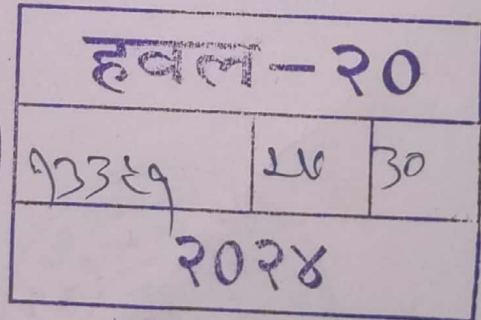 हवल-२०
१३३६१ ३०
२०२४